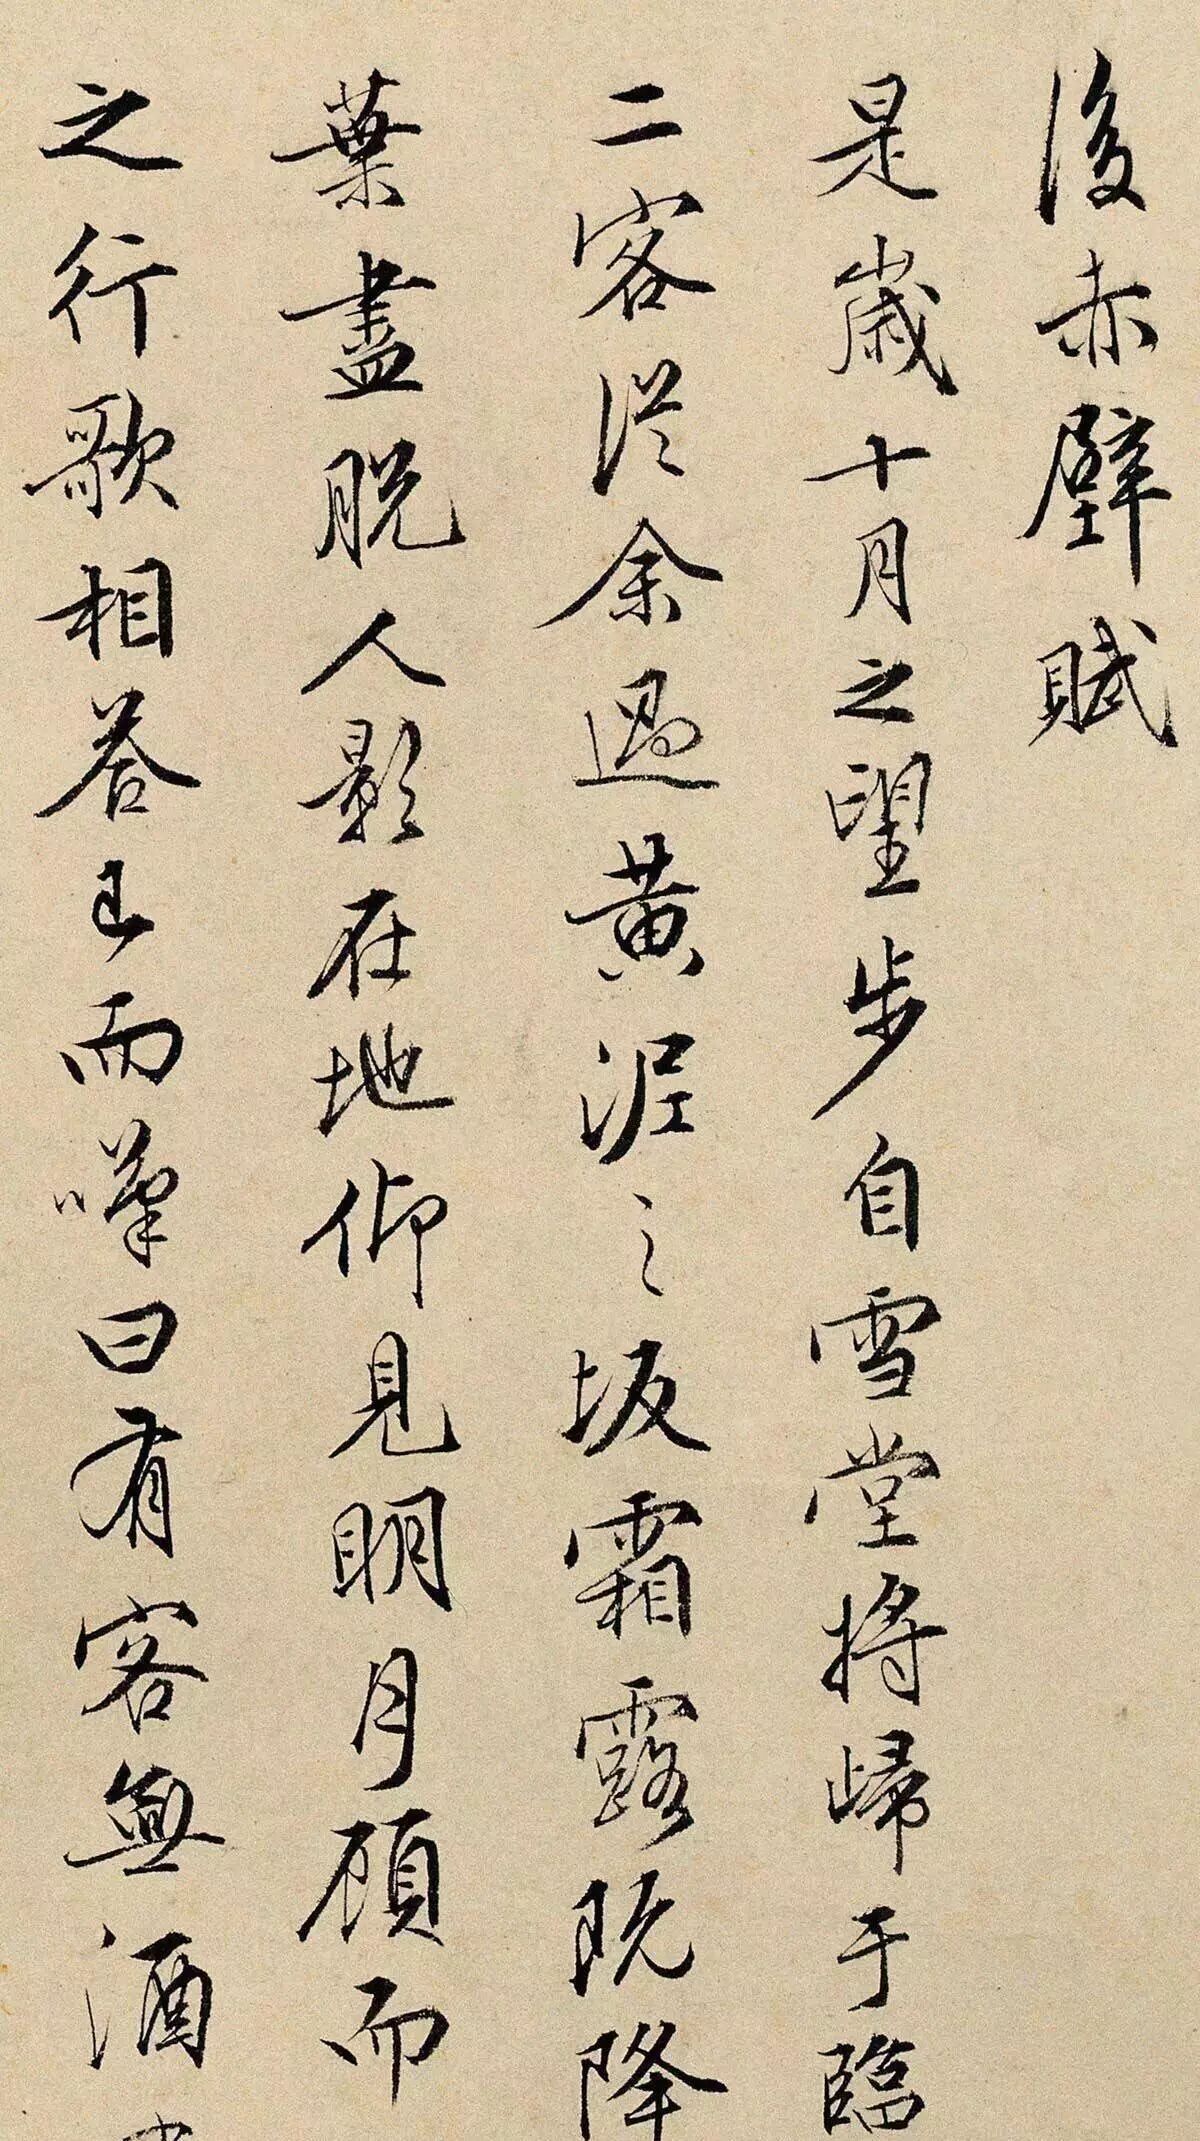 後赤壁賦
是歲十月之望步自雪堂將歸于臨
二客從余過黃泥之坂霜露既降
葉盡脫人影在地仰見明月顧而
之行歌相答已而嘆曰有客無酒